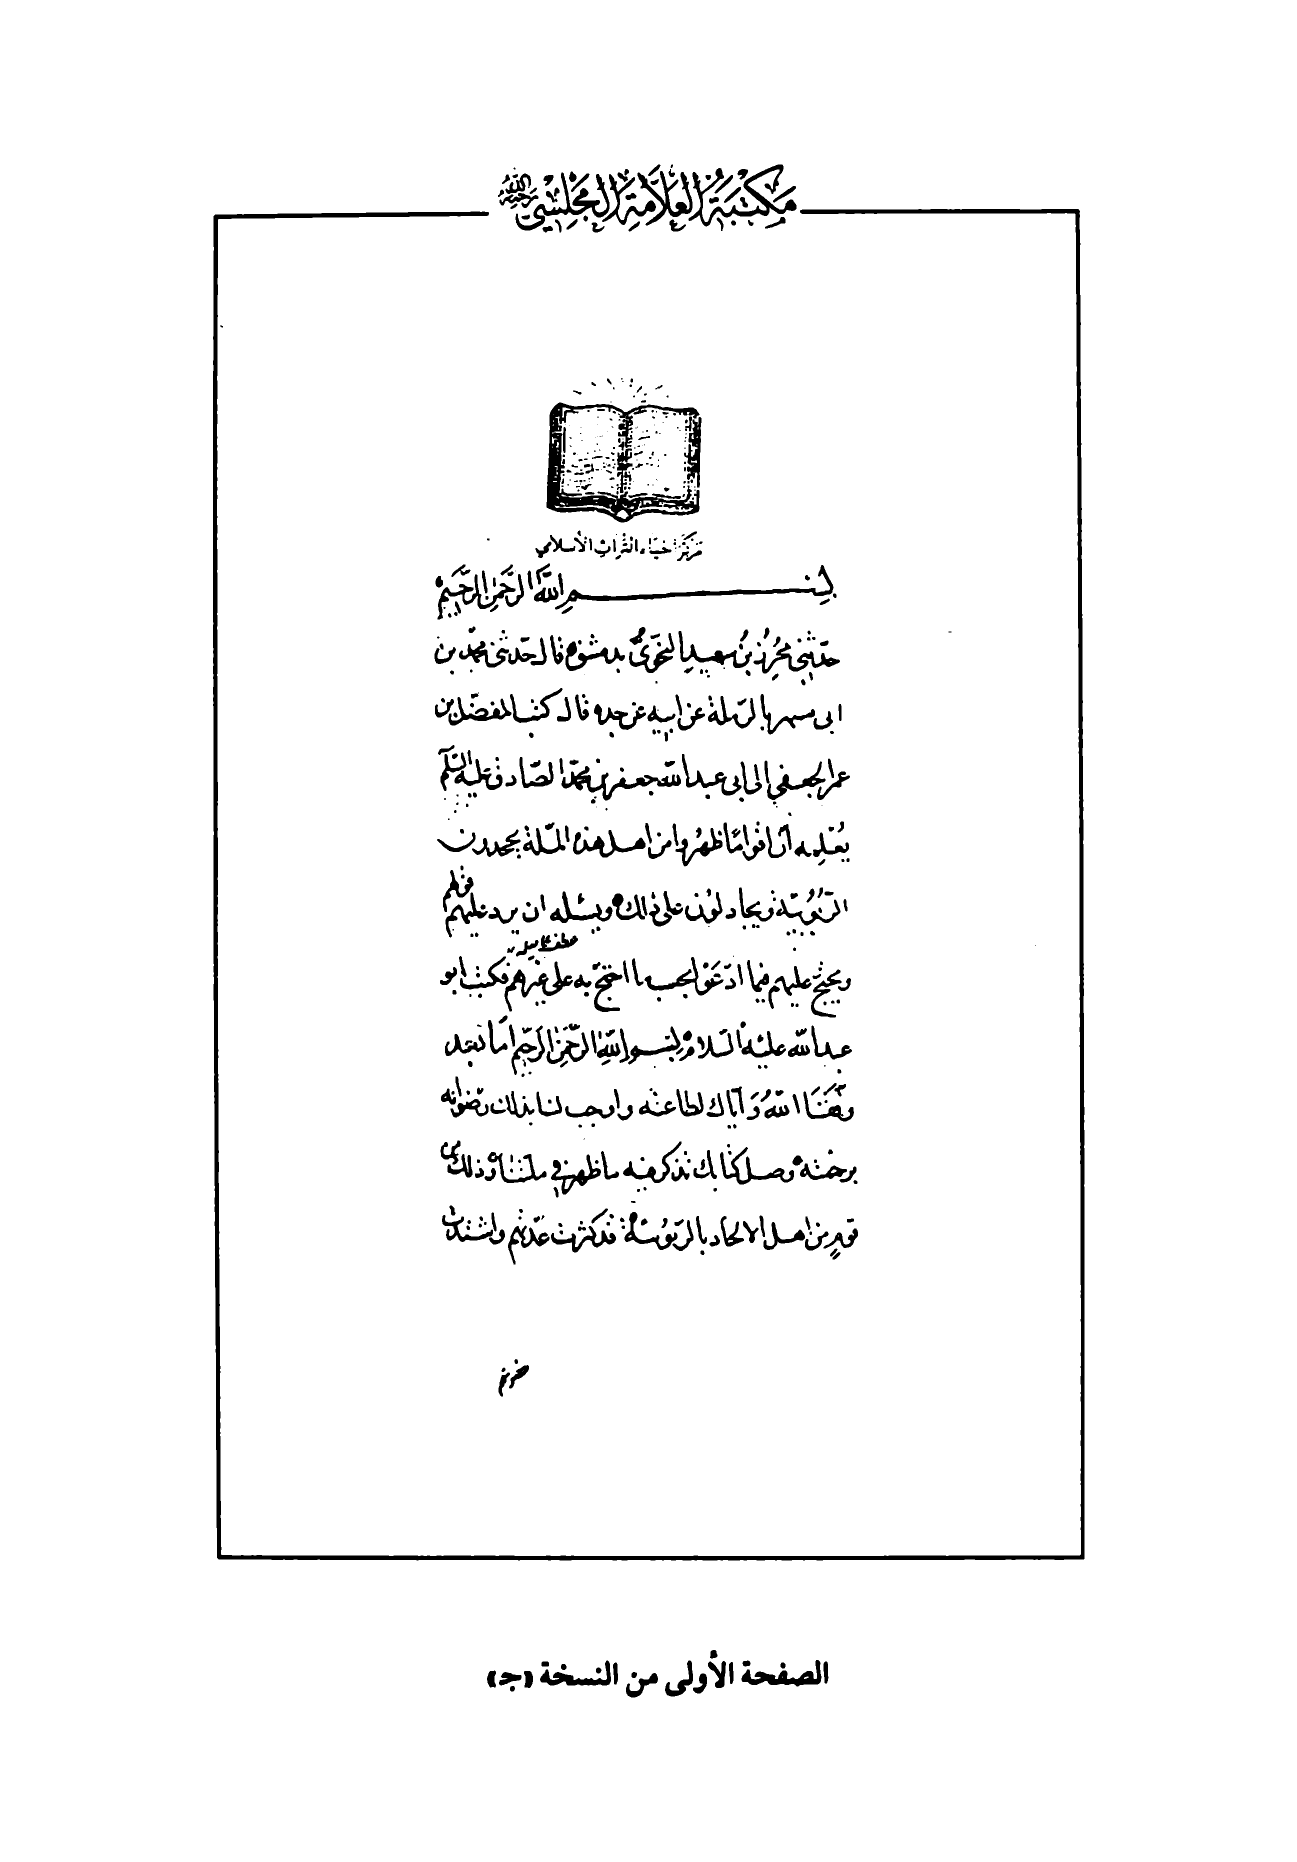 مكتبة العلامة المجلسي رحمه الله
مركز احياء التراث الاسلامي
بسم الله الرحمن الرحيم
حدثني محرز بن سعيد النحوي بدمشق قال حدثني محمد بن
ابى مسهر بالرملة عن ابيه عن جده قال كتب المفضل بن
عمر الجعفي الى ابى عبد الله جعفر بن محمد الصادق عليه السلم
يعلمه ان اقواما ظهروا من اهل هذه الملة يجحدون
الربوبية ويجادلون على ذلك ويسئله ان يرد عليهم قولهم
ويحتج عليهم فيما ادعوا بحسب ما احتج به على غيرهم فكتب ابو
عبد الله عليه السلام بسم الله الرحمن الرحيم اما بعد
وفقنا الله واياك لطاعته واوجب لنا بذلك رضوانه
برحمته وصل كتابك تذكر فيه ما ظهر في ملتنا وذلك من
قوم من اهل الالحاد بالربوبية قد كثرت عدتهم واشتدت
الصفحة الأولى من النسخة «ج»